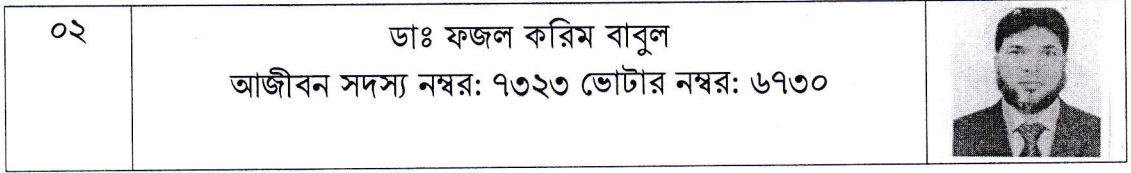 ০২
ডাঃ ফজল করিম বাবুল
আজীবন সদস্য নম্বর: ৭৩২৩ ভোটার নম্বর: ৬৭৩০